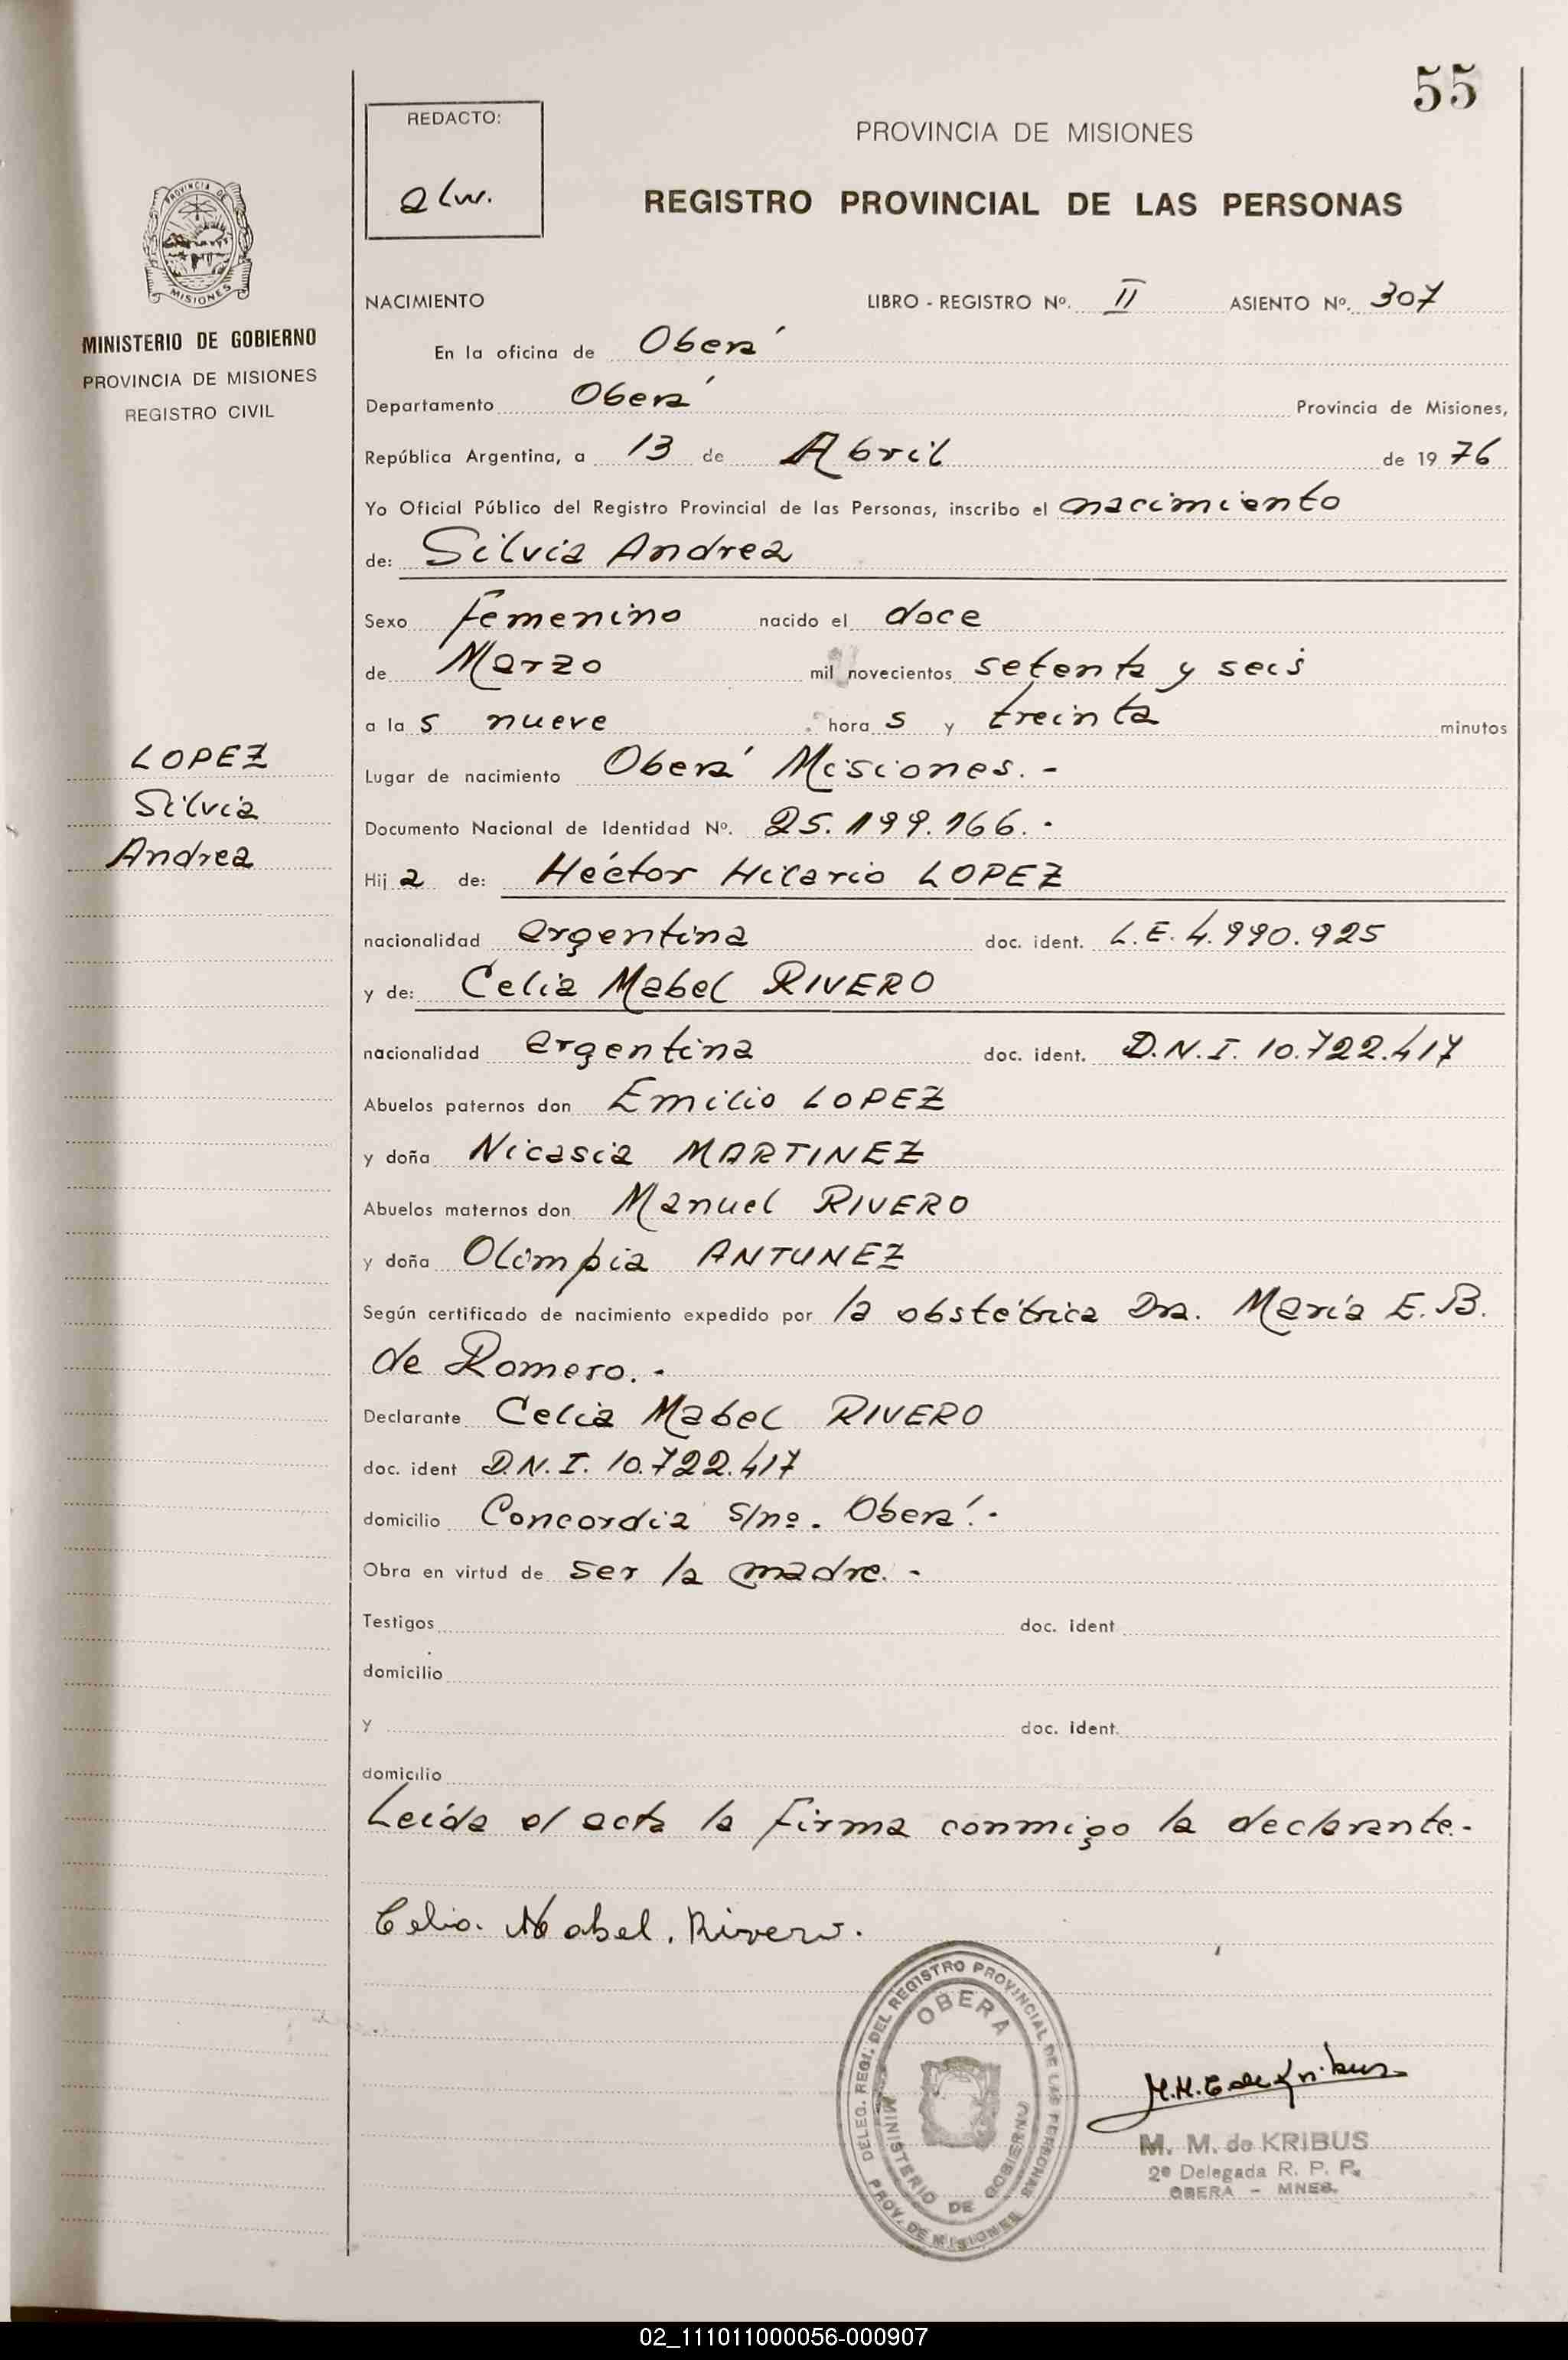 55
REDACTO:
alw.
PROVINCIA DE MISIONES
REGISTRO PROVINCIAL DE LAS PERSONAS
PROVINCIA DE
MISIONES
MINISTERIO DE GOBIERNO
PROVINCIA DE MISIONES
REGISTRO CIVIL
NACIMIENTO LIBRO - REGISTRO Nº. II ASIENTO Nº. 307
En la oficina de Oberá
Departamento Oberá Provincia de Misiones,
República Argentina, a 13 de Abril de 1976
Yo Oficial Público del Registro Provincial de las Personas, inscribo el nacimiento
de: Silvia Andrea
Sexo femenino nacido el doce
de Marzo mil novecientos setenta y seis
a las nueve horas y treinta minutos
LOPEZ
Silvia
Andrea
Lugar de nacimiento Oberá Misiones. -
Documento Nacional de Identidad Nº. 25.199.166. -
Hija de: Héctor Hilario LOPEZ
nacionalidad argentina doc. ident. L.E. 4.990.925
y de: Celia Mabel RIVERO
nacionalidad argentina doc. ident. D.N.I. 10.722.417
Abuelos paternos don Emilio LOPEZ
y doña Nicasia MARTINEZ
Abuelos maternos don Manuel RIVERO
y doña Olimpia ANTUNEZ
Según certificado de nacimiento expedido por la obstétrica Dra. María E. B.
de Romero. -
Declarante Celia Mabel RIVERO
doc. ident D.N.I. 10.722.417
domicilio Concordia s/nº. Oberá. -
Obra en virtud de ser la madre. -
Testigos doc. ident
domicilio
y doc. ident.
domicilio
Leída el acta la firma conmigo la declarante. -
Celia. Mabel. Rivero.
DELEG. REGI. DEL REGISTRO PROVINCIAL DE LAS PERSONAS
OBERA
MINISTERIO DE GOBIERNO
PROV. DE MISIONES
M. M. de Kribus
M. M. de KRIBUS
2ª Delegada R. P. P.
OBERA - MNES.
02_111011000056-000907